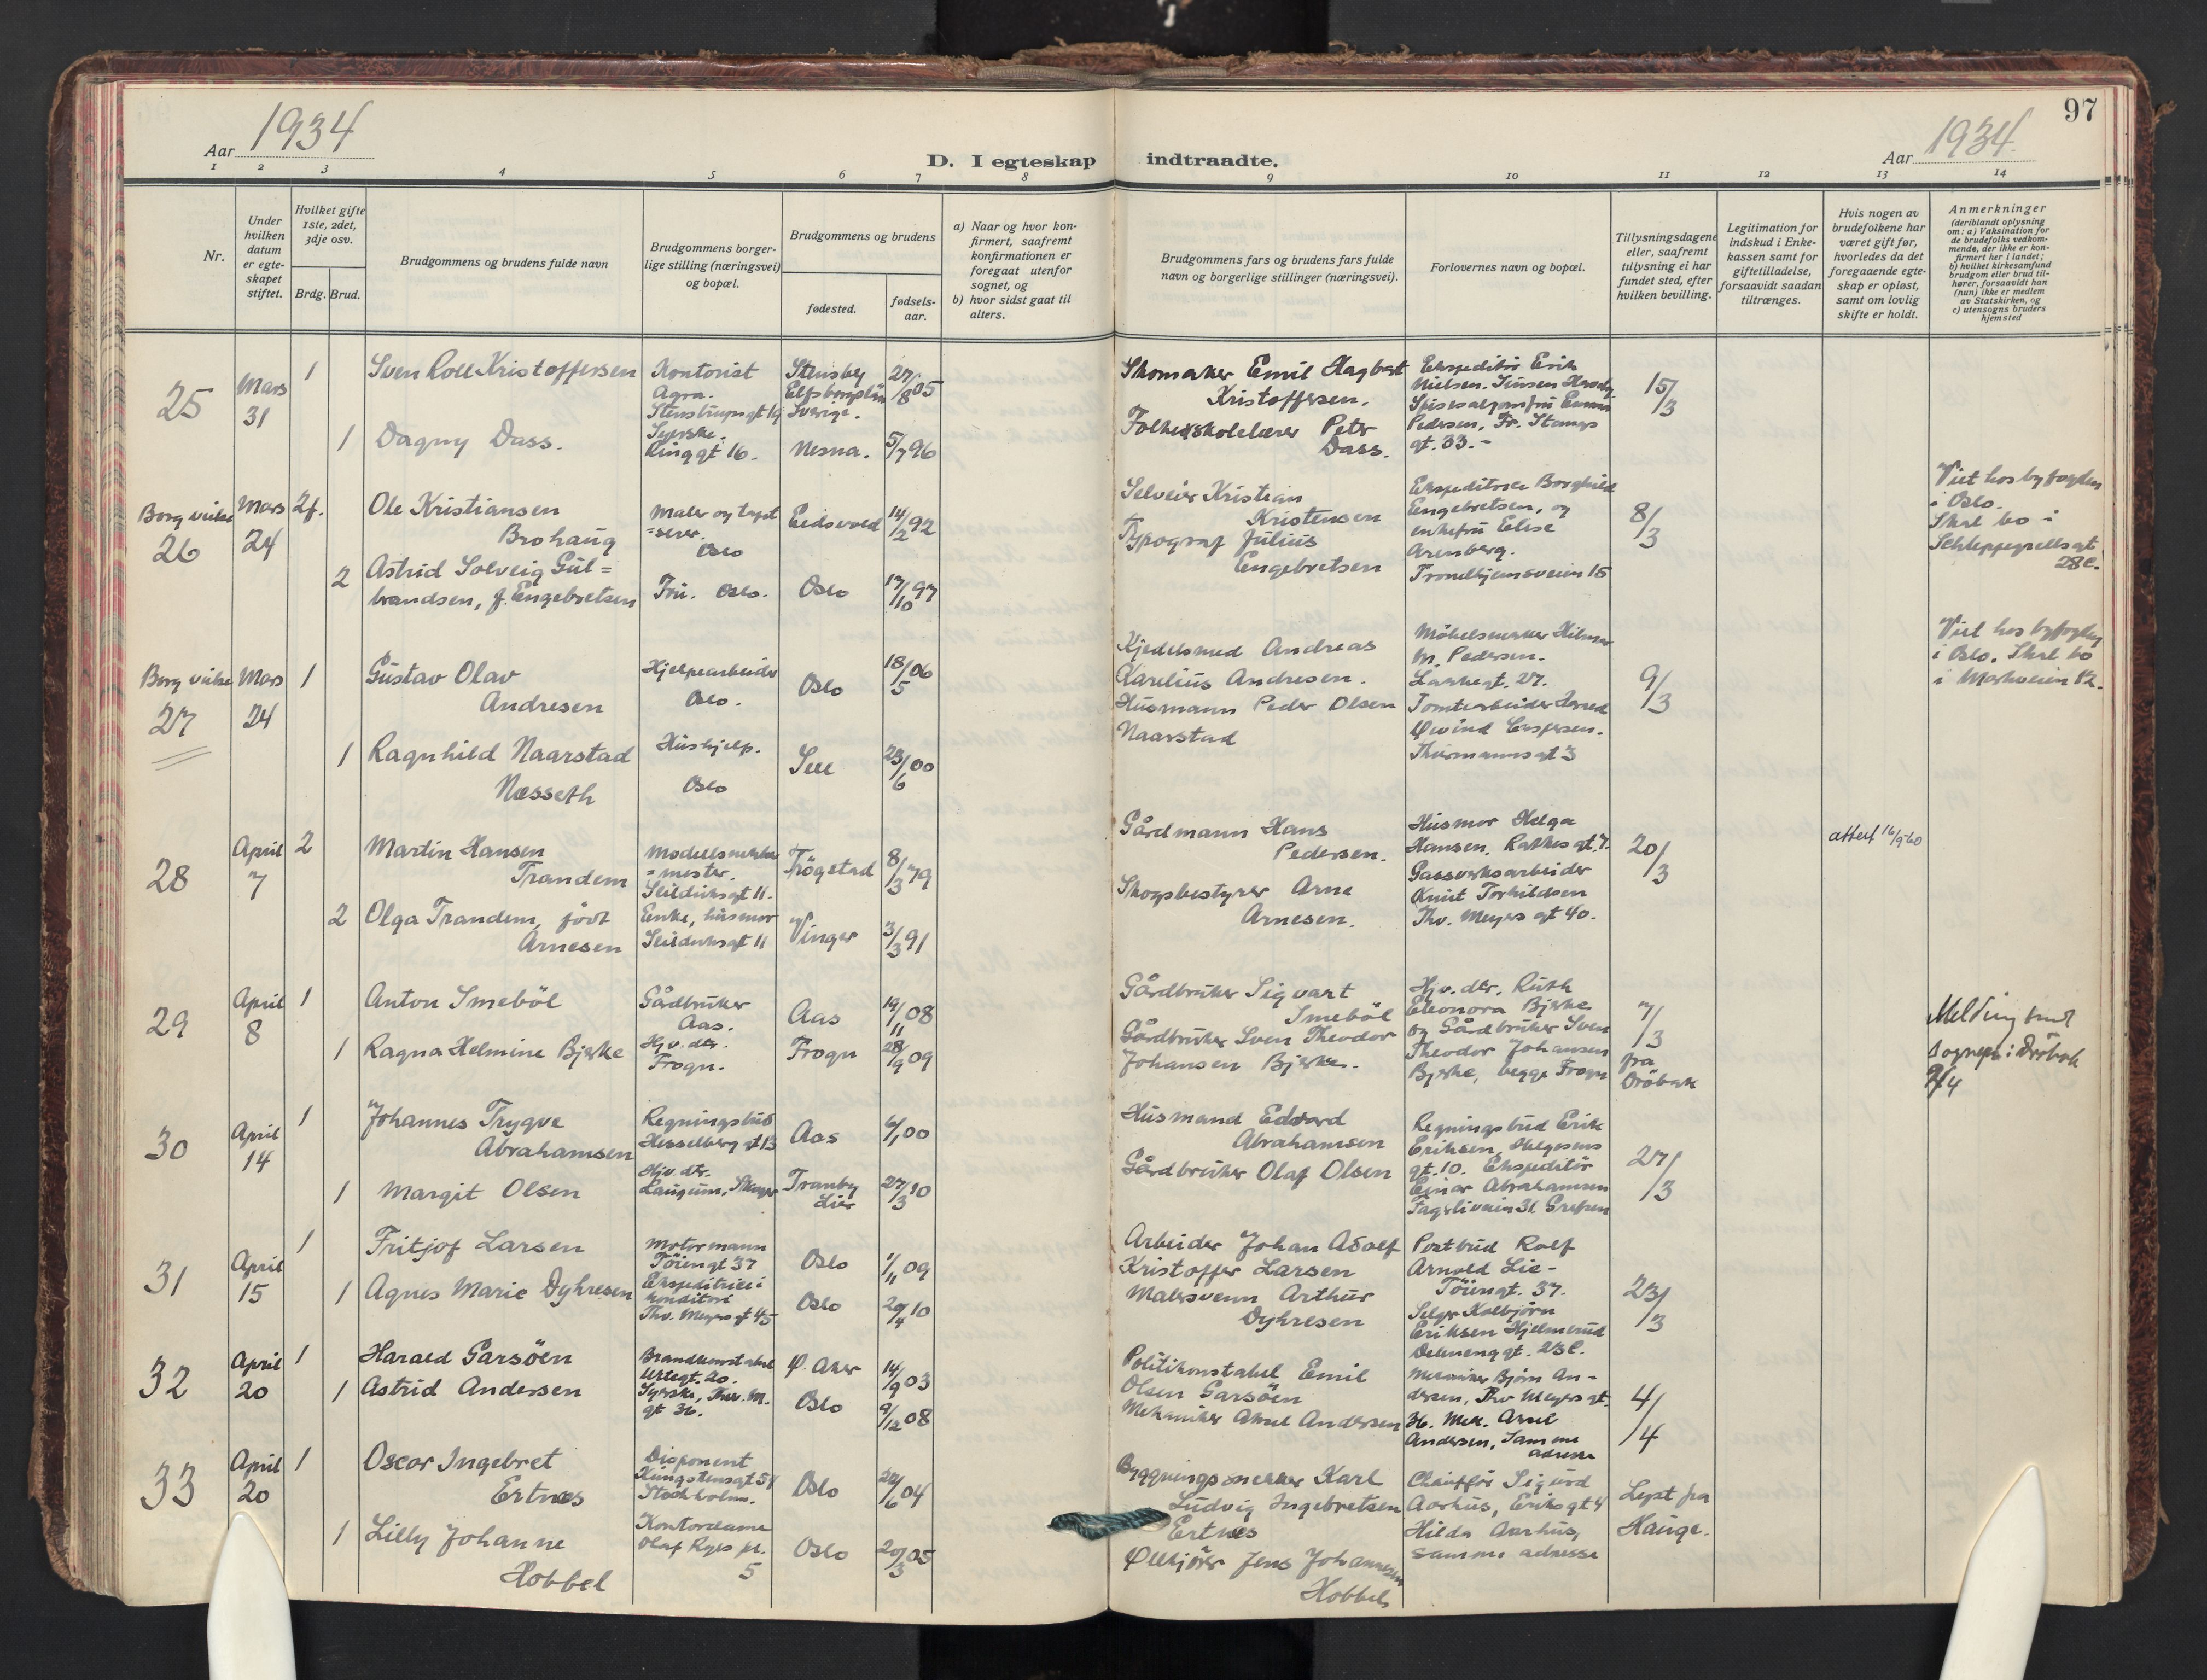 97
Aar 1934
D. I egteskap indtraadte.
Aar 1934.
1 2 3 4 5 6 7 8 9 10 11 12 13 14
Nr.
Under hvilken datum er egteskapet stiftet.
Hvilket gifte 1ste, 2det, 3dje osv.
Brdg. Brud.
Brudgommens og brudens fulde navn
Brudgommens borgerlige stilling (næringsvei) og bopæl.
Brudgommens og brudens
fødested.
fødselsaar.
a) Naar og hvor konfirmert, saafremt konfirmationen er foregaat utenfor sognet, og
b) hvor sidst gaat til alters.
Brudgommens fars og brudens fars fulde navn og borgerlige stillinger (næringsvei).
Forlovernes navn og bopæl.
Tillysningsdagene eller, saafremt tillysning ei har fundet sted, efter hvilken bevilling.
Legitimation for indskud i Enkekassen samt for giftetilladelse, forsaavidt saadan tiltrænges.
Hvis nogen av brudefolkene har været gift før, hvorledes da det foregaaende egteskap er opløst, samt om lovlig skifte er holdt.
Anmerkninger
(deriblandt oplysning om: a) Vaksination for de brudefolks vedkommende, der ikke er konfirmert her i landet;
b) hvilket kirkesamfund brudgom eller brud tilhører, forsaavidt han (hun) ikke er medlem av Statskirken, og
c) utensogns bruders hjemsted
25
Mars
31
1
Sven Roll Kristoffersen
Kontorist
Agra.
Stenstrupsgt 19
Stensby
Elfsborgslän
Sverige.
27/8 05
Skomaker Emil Hagbart
Kristoffersen.
Ekspeditør Erik
Nielsen.
15/3
1
Dagny Dass.
Syerske.
Ringgt 16.
Nesna.
5/7 96
Folkeskolelærer Petr
Dass.
Pedersen, Fr. Stangs
gt. 33.-
Borg virke
26
Mars
24
2f.
Ole Kristiansen
Brohaug
Maler og tapet
=serer.
Oslo
Eidsvold
14/2 92
Selveier Kristian
Kristensen
Ekspeditrice Borghild
Engebretsen, og
enkefru Elise
Arenberg.
Trondhjemsveien 15
8/3
Viet hos byfogden
i Oslo.
Skal bo i
Schleppegrellsgt
28c.
2
Astrid Solveig Gul=
brandsen, f. Engebretsen
Fru. Oslo.
Oslo
17/10 97
Typograf Julius
Engebretsen
Borg virke
27
Mars
24
1
Gustav Olav
Andresen
Hjelpearbeider
Oslo.
Oslo
18/5 06
Kjedelsmed Andreas
Karelius Andresen.
Møbelsnekker Hilmar
M. Pedersen.
Lakkegt. 27.
9/3
Viet hos byfogden
i Oslo. Skal bo
i Markveien 12.
1
Ragnhild Naarstad
Næsseth
Hushjelp.
Oslo
23/6 00
Husmann Peder Olsen
Naarstad
Tomtearbeider Harald
Øivind Caspersen.
Thurmannsgt 3
28
April
7
2
Martin Hansen
Trandem
Modellsnekker
=mester.
Seilduksgt 11.
Trøgstad
8/3 79
Gårdmann Hans
Pedersen.
Husmor Helga
Hansen, Rathkes gt. 7.
20/3
attest 16/9-60
2
Olga Trandem, født
Arnesen
Enke, husmor
Seilduksgt 11
Vinger
3/3 91
Skogsbestyrer Arne
Arnesen.
Gassverksarbeider
Knut Torkildsen
Thv. Meyers gt 40.
29
April
8
1
Anton Smebøl
Gårdbruker
Aas.
Aas
19/11 08
Gårdbruker Sigvart
Smebøl
Hjv. dtr. Ruth
Eleonora Bjerke
og Gårdbruker Sven
Theodor Johansen
Bjerke, begge Frogn
7/3
fra
Drøbak
Melding sendt
sognepr. i Drøbak
9/4
1
Ragna Helmine Bjerke
Hjv. dtr.
Frogn.
Frogn
28/9 09
Gårdbruker Sven Theodor
Johansen Bjerke.
30
April
14
1
Johannes Trygve
Abrahamsen
Regningsbud
Hesselberg gt 13
Aas
6/1 00
Husmand Edvard
Abrahamsen
Regningsbud Erik
Eriksen, Helgesens
gt. 10. Ekspeditør
Einar Abrahamsen
Fagerliveien 31. Grefsen
27/3
1
Margit Olsen
Hjv. dtr.
Tranby
Lier
27/3 10
Gårdbruker Olaf Olsen
31
April
15
1
Fritjof Larsen
Motormann
Töiengt 37
Oslo
1/11 09
Arbeider Johan Adolf
Kristoffer Larsen
Postbud Rolf
Arnold Lie-
Töiengt. 37.
23/3
1
Agnes Marie Dyhresen
Ekspeditrice i
konditori
Thv. Meyers gt 45
Oslo
29/4 10
Malersvenn Arthur
Dyhresen
Selger Kolbjørn
Eriksen Hjelmerud
Dælenenggt. 23 C.
32
April
20
1
Harald Garsöen
Brandkonstabel
Urtegt. 20.
Ø. Aker
14/9 03
Politikonstabel Emil
Olsen Garsöen
Mekaniker Bjørn An-
dersen, Thv Meyers gt.
36. Mek. Aksel
Andersen, Samme
adresse
4/4
1
Astrid Andersen
Syerske, Thv. M.
gt 36.
Oslo
9/12 08
Mekaniker Aksel Andersen
33
April
20
1
Oscar Ingebret
Ertnes
Disponent
Kungstensgt 51
Stockholm.
Oslo
24/6 04
Bygningssnekker Karl
Ludvig Ingebretsen
Ertnes
Chauffør Sigurd
Aarhus, Eriksgt 4
Hilda Aarhus,
samme adresse
Lyst fra
Hauge.
1
Lilly Johanne
Hobbel
Kontordame
Olaf Ryes pl.
5
Oslo
20/3 05
Ølkjører Jens Johannesen
Hobbel